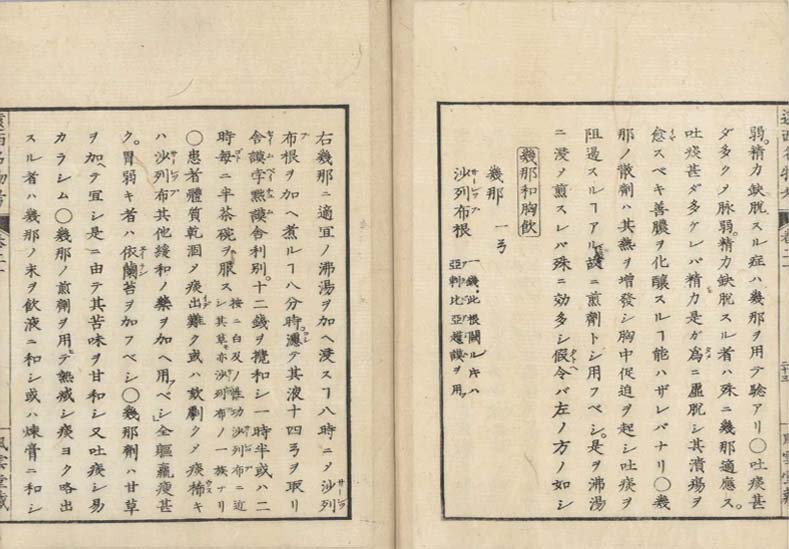 弱。精力缺脱スル症ハ幾那ヲ用テ驗アリ〇吐痰甚
ダ多ク脉弱。精力缺脱スル者ハ殊ニ幾那適應ス。
吐痰甚ダ多ケレバ精力是ガ爲ニ虛脱シ其潰瘍ヲ
愈スベキ善膿ヲ化釀スルヿ能ハザレバナリ〇幾
那ノ散劑ハ其熱ヲ增發シ胸中促迫ヲ起シ吐痰ヲ
阻遏スルヿアル故ニ煎劑トシ用フベシ。是ヲ沸湯
ニ浸メ煎スレバ殊ニ効多シ假令バ左ノ方ノ如シ
幾那和胸飲
幾那 一弓
沙列布根 一錢。此根闕ル片ハ
亞剌比亞護謨ヲ用
右幾那ニ適宜ノ沸湯ヲ加ヘ浸スヿ八時ニメ沙列
布根ヲ加ヘ煮ルヿ八分時。濾テ其液十四弓ヲ取リ
舍謨字黙謨舍利別。十二錢ヲ攪和シ一時半或ハ二
時每ニ半茶碗ヲ服ス 按ニ白及ノ性功沙列布ニ近
シ其草亦沙列布ノ一族ナリ
〇患者體質乾涸メ痰出難ク或ハ欬劇クメ痰稀キ
ハ沙列布其他緩和ノ藥ヲ加ヘ用フベシ」全軀羸瘦甚
ク。胃弱キ者ハ依蘭苔ヲ加フベシ〇幾那劑ハ甘草
ヲ加テ宜シ是ニ由テ其苦味ヲ甘和シ又吐痰シ易
カラシム〇幾那ノ煎劑ヲ用テ熱減シ痰ヨク咯出
スル者ハ幾那ノ末ヲ飲液ニ和シ或ハ煉膏ニ和シ
風雲堂藏